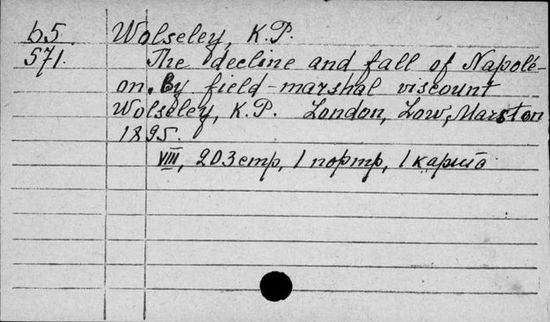 b5 Wolseley, K.P.
571. The decline and fall of Napolé-
on. By field-marshal viscount
Wolseley, K.P. London, Low, Marston
1895.
VIII, 203 стр, 1 портр, 1 карта